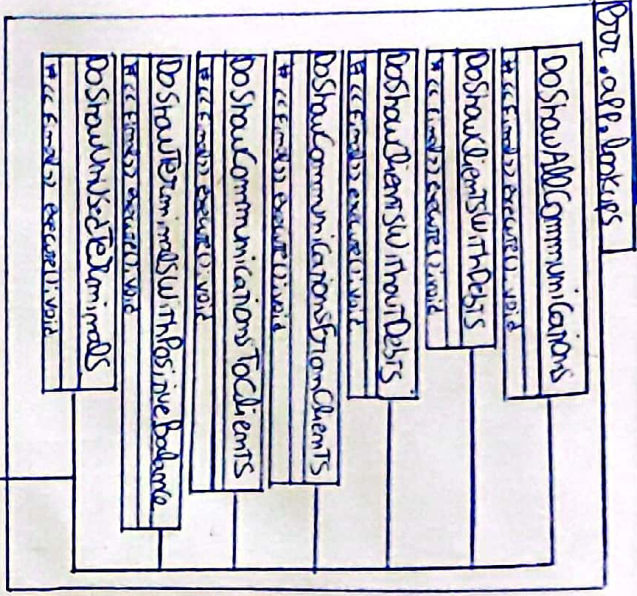 Prr.app.lookups
DoShowAllCommunications
# <<Final>> execute(): void
DoShowClientsWithDebts
# <<Final>> execute(): void
DoShowClientsWithoutDebts
# <<Final>> execute(): void
DoShowCommunicationsFromClients
# <<Final>> execute(): void
DoShowCommunicationsToClients
# <<Final>> execute(): void
DoShowTerminalsWithPositiveBalance
# <<Final>> execute(): void
DoShowUnusedTerminals
# <<Final>> execute(): void